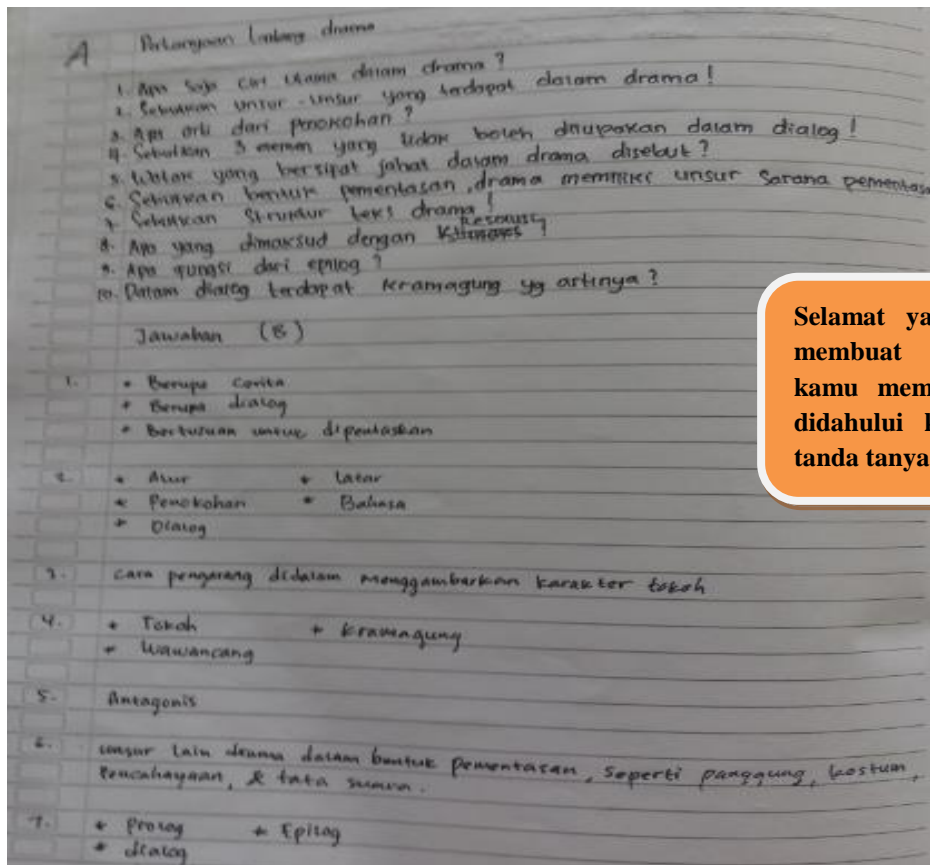 A Pertanyaan tentang drama
1. Apa saja ciri utama dalam drama?
2. Sebutkan unsur-unsur yang terdapat dalam drama!
3. Apa arti dari penokohan?
4. Sebutkan 3 elemen yang tidak boleh dilupakan dalam dialog!
5. Watak yang bersipat jahat dalam drama disebut?
6. Sebutkan bentuk pementasan, drama memiliki unsur sarana pementasa
7. Sebutkan Struktur teks drama!
8. Apa yang dimaksud dengan Resolusi?
9. Apa fungsi dari epilog?
10. Dalam dialog terdapat kramagung yg artinya?
Jawaban (B)
1. * Berupa Cerita
* Berupa dialog
* Bertujuan untuk dipentaskan
2. * Alur * Latar
* Penokohan * Bahasa
* Dialog
3. cara pengarang didalam menggambarkan karakter tokoh
4. * Tokoh * Kramagung
* Wawancang
5. Antagonis
6. unsur lain drama dalam bentuk pementasan, seperti panggung, kostum,
pencahayaan, & tata suara.
7. * Prolog * Epilog
* dialog
Selamat ya
membuat
kamu mem
didahului k
tanda tanya